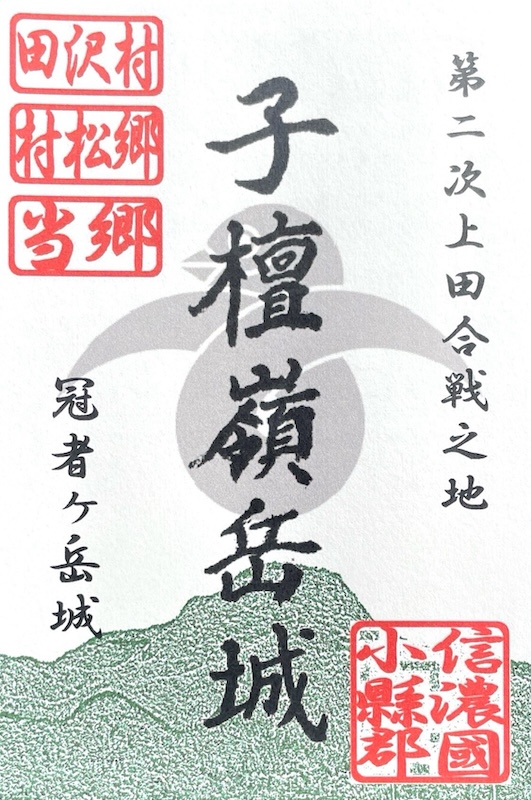 第二次上田合戦之地
子檀嶺岳城
冠者ケ岳城
田沢村
村松郷
当郷
信濃國
小縣郡